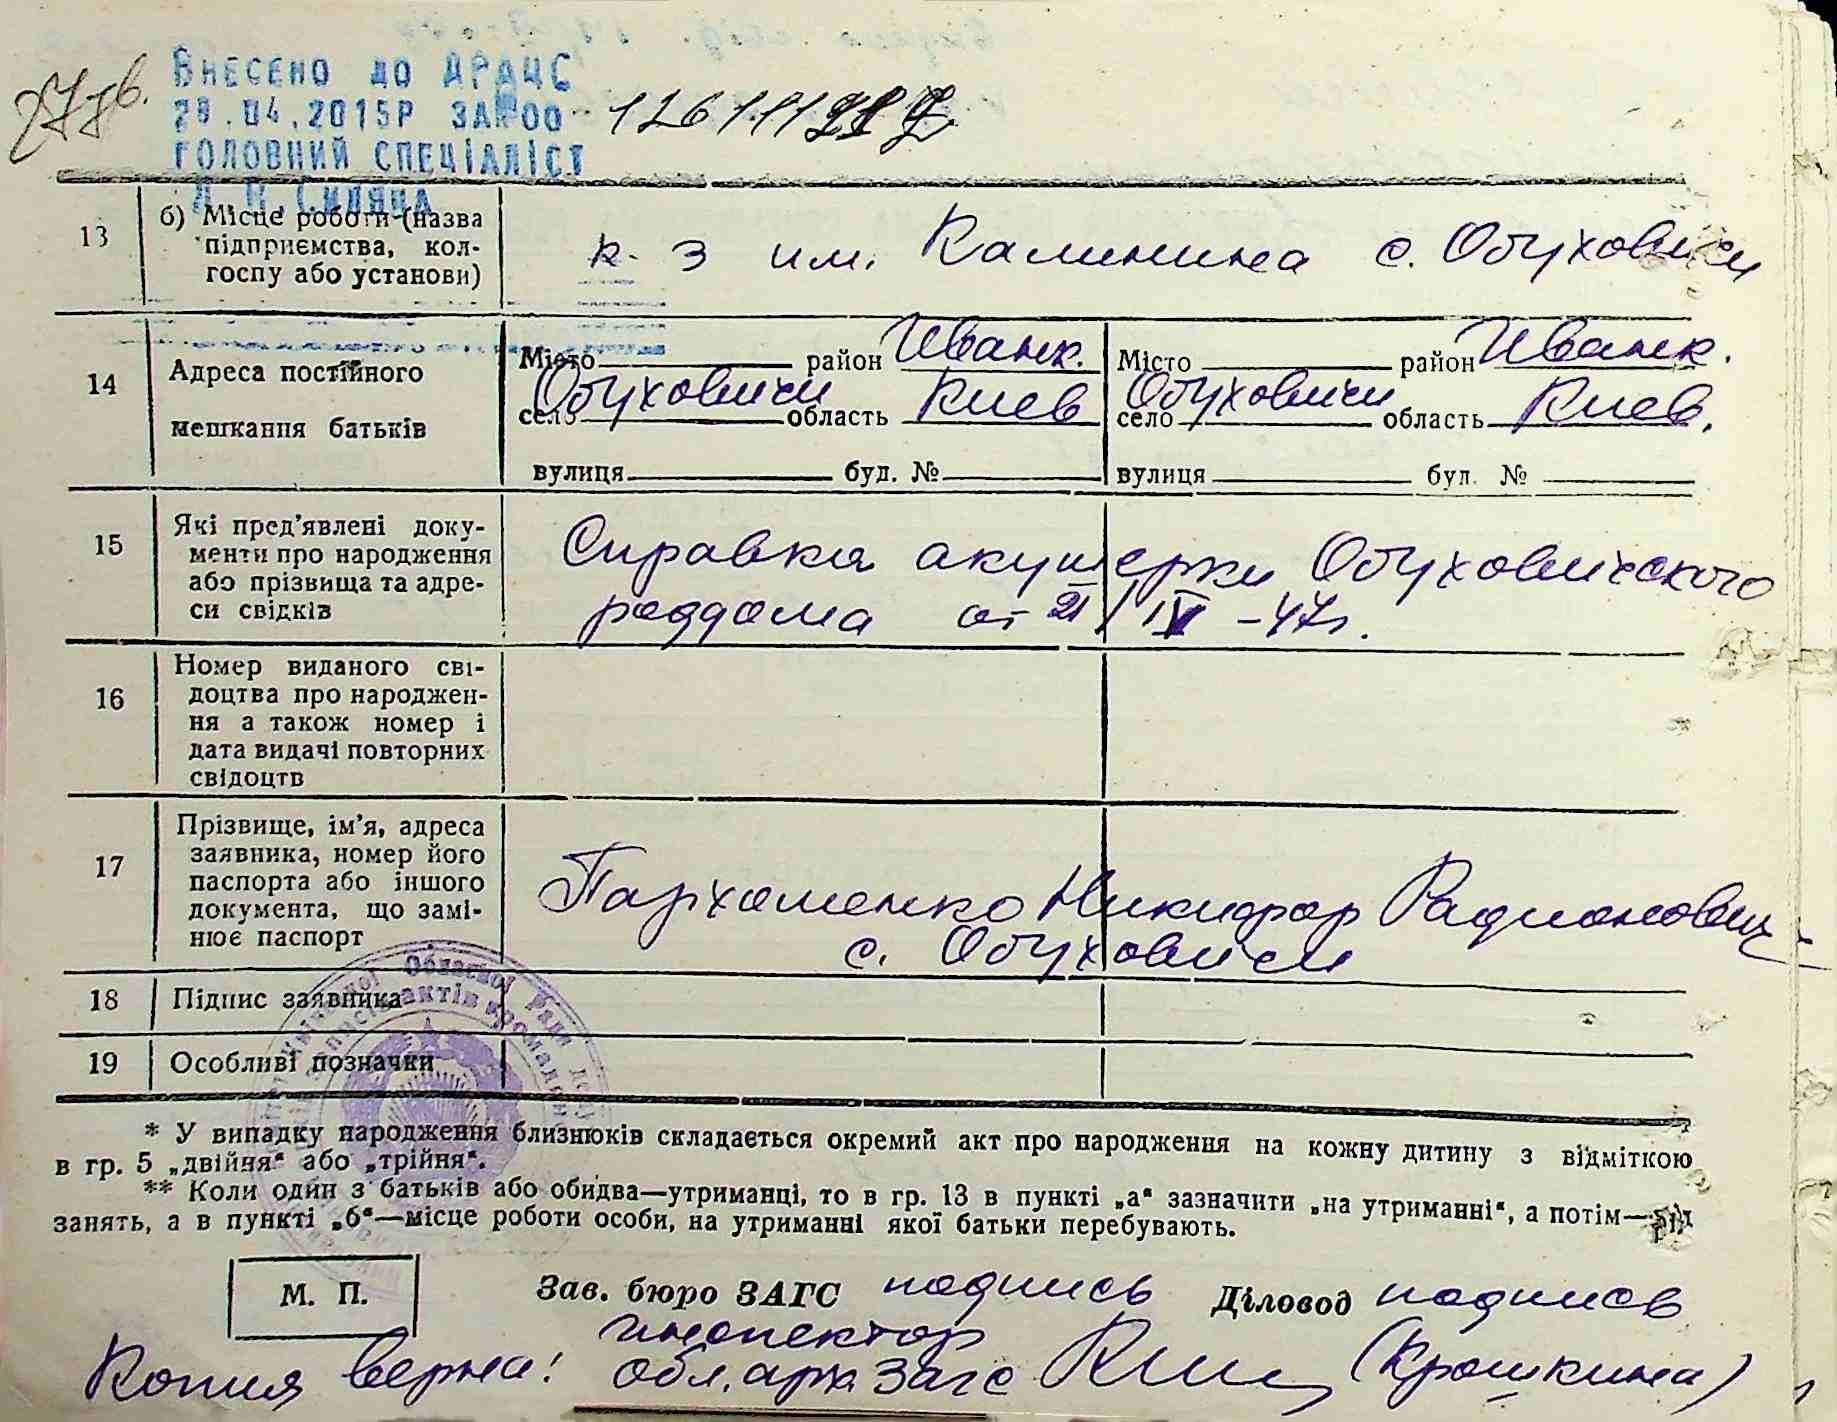 27зв.
ВНЕСЕНО ДО ДРАЦС
28.04.2015Р ЗА №00 12611199
ГОЛОВНИЙ СПЕЦІАЛІСТ
13
б) Місце роботи (назва
підприємства, кол-
госпу або установи)
к-з им. Калинина с. Обуховичи
14
Адреса постійного
мешкання батьків
Місто район Иванк. Місто район Иванк.
село Обуховичи область Киев село Обуховичи область Киев.
вулиця буд. № вулиця буд. №
15
Які пред'явлені доку-
менти про народження
або прізвища та адре-
си свідків
Справка акушерки Обуховичского
роддома от 21/IV-47г.
16
Номер виданого сві-
доцтва про народжен-
ня а також номер і
дата видачі повторних
свідоцтв
17
Прізвище, ім'я, адреса
заявника, номер його
паспорта або іншого
документа, що замі-
нює паспорт
Пархоменко Никифор Радионович
с. Обуховичи
18
Підпис заявника
19
Особливі позначки
* У випадку народження близнюків складається окремий акт про народження на кожну дитину з відміткою
в гр. 5 „двійня“ або „трійня“.
** Коли один з батьків або обидва—утриманці, то в гр. 13 в пункті „а“ зазначити „на утриманні“, а потім—рід
занять, а в пункті „б“—місце роботи особи, на утриманні якої батьки перебувають.
М. П.
Зав. бюро ЗАГС подпись Діловод подпись
инспектор
Копия верна! обл. арх. Загс (Крошкина)